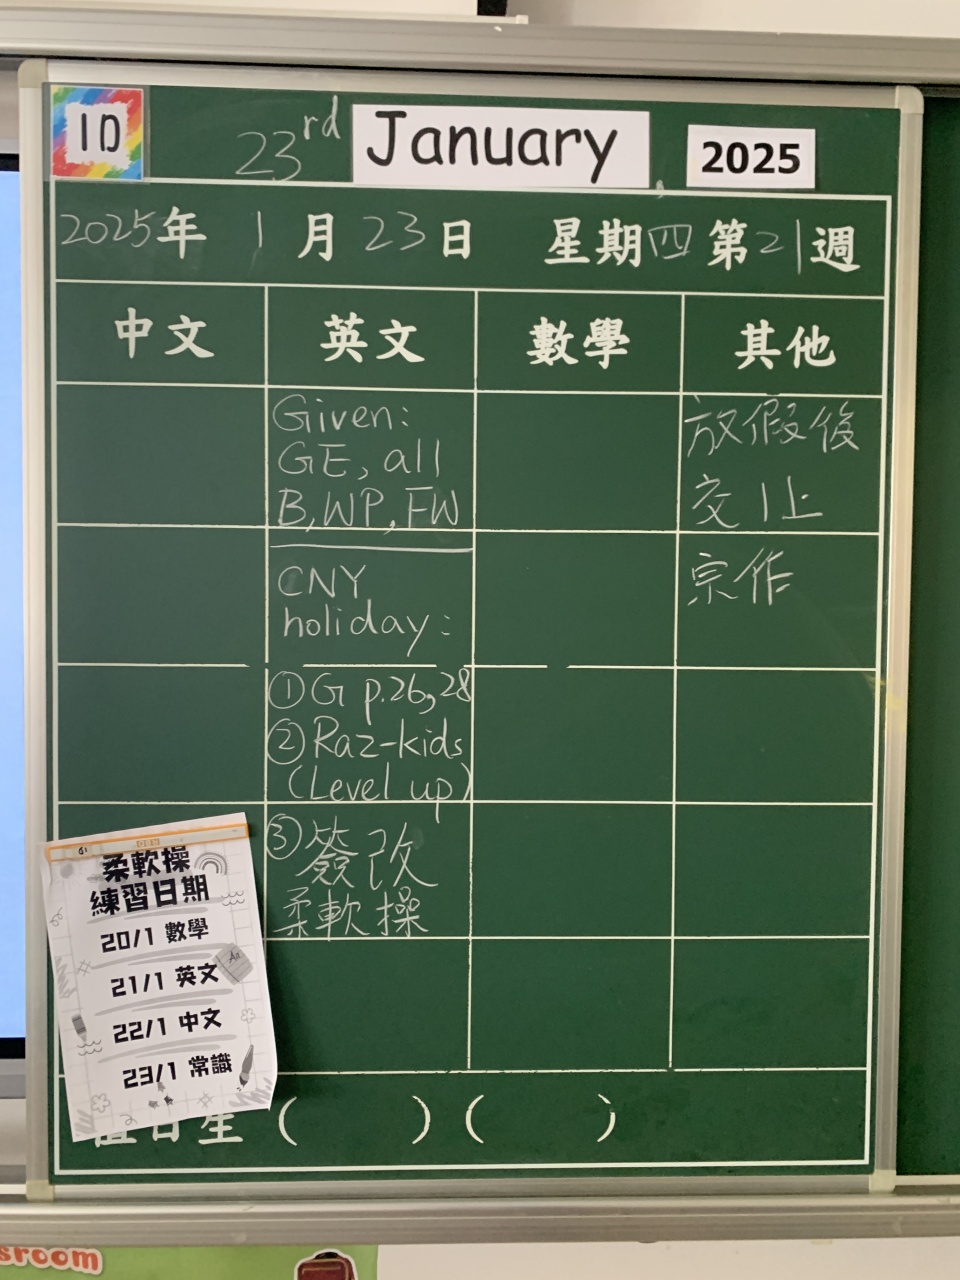 1D
23rd January 2025
2025年 1月23日 星期四第21週
中文 英文 數學 其他
Given:
GE, all
B, WP, FW
CNY
holiday:
①G p.26,28
②Raz-kids
(Level up)
③簽改
柔軟操
放假後
交
宗作
柔軟操
練習日期
20/1 數學
21/1 英文
22/1 中文
23/1 常識
Aa
( ) ( )
sroom